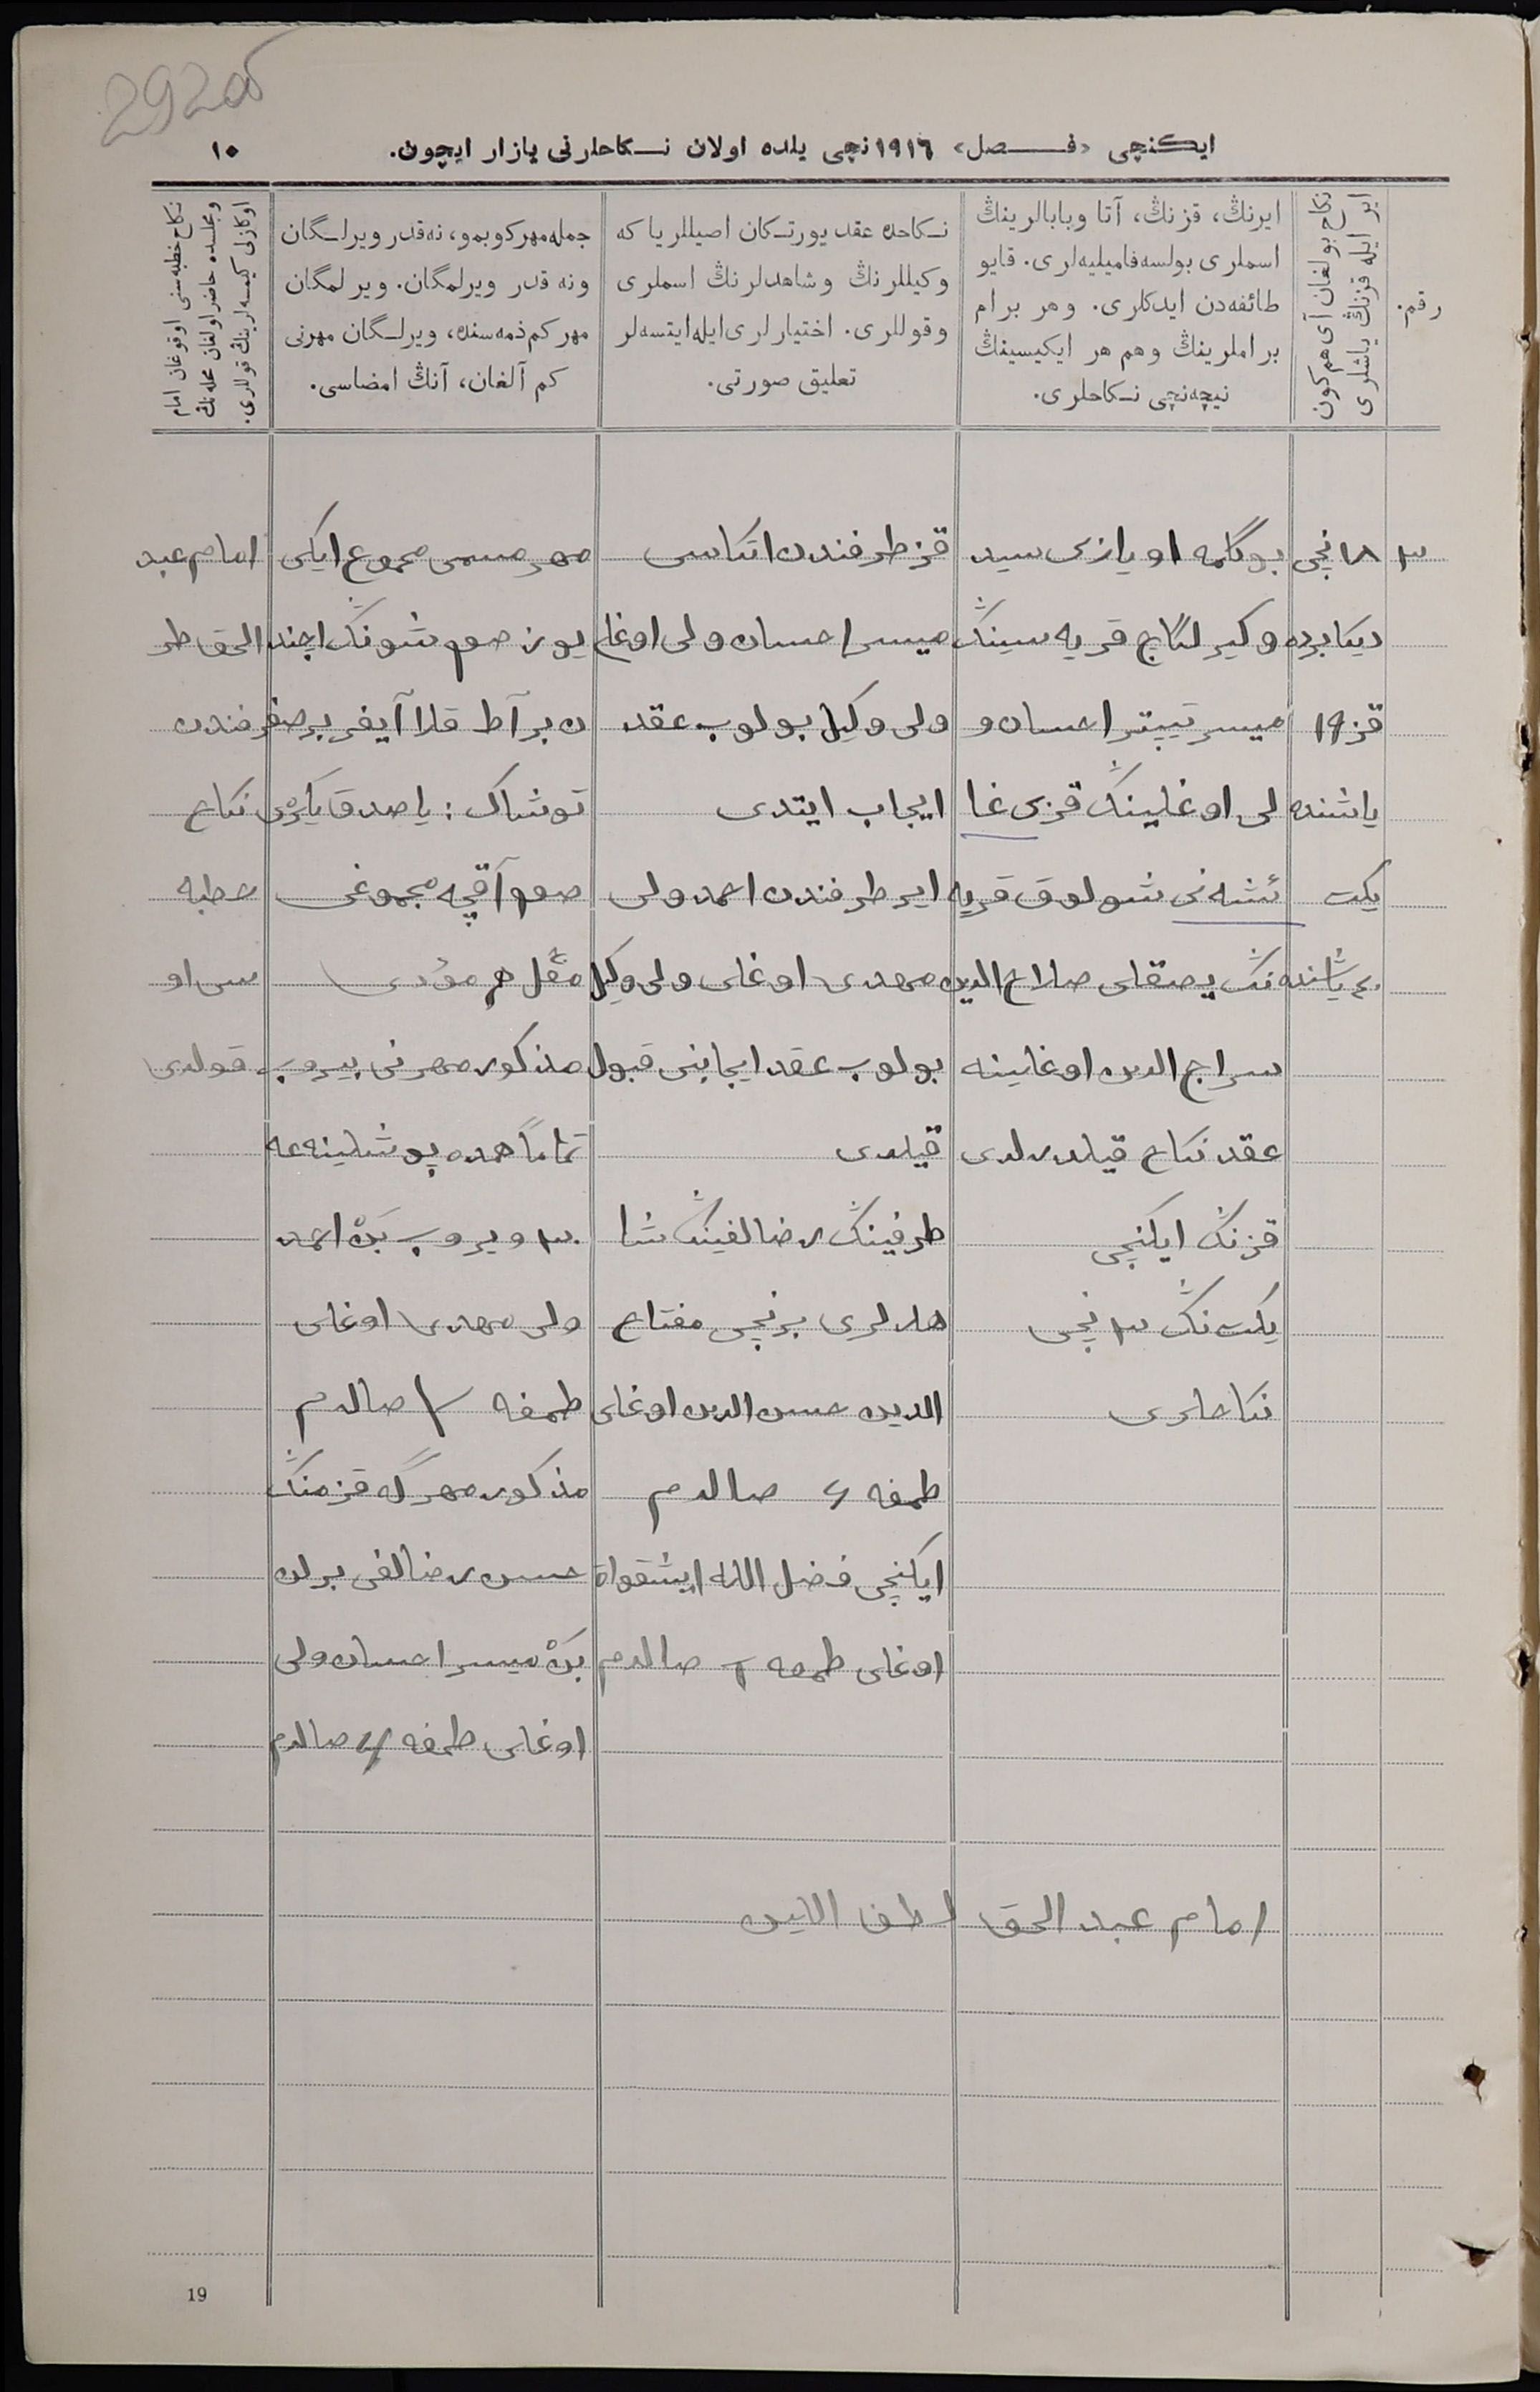 292об
ایکنچی «فصل» ١٩١٦نچی یلده اولان نکاحلرنی یازار ایچون.
١٠
رقم.
نکاح بولغان آی هم کون
ایر ایله قزنڭ یاشلری
ایرنڭ، قزنڭ، آتا وبابالرینڭ
اسملری بولسه فامیلیه‌لری. قایو
طائفه‌دن ایدکلری. وهر برام
براملرینڭ وهم هر ایکیسینڭ
نیچه‌نچی نکاحلری.
نکاحده عقد یورتکان اصیللر یا که
وکیللرنڭ وشاهدلرنڭ اسملری
وقوللری. اختیارلری ایله ایتسه‌لر
تعلیق صورتی.
جمله مهر کوبمو، نه قدر ویرلگان
ونه قدر ویرلمگان. ویرلمگان
مهر کم ذمه سنده، ویرلگان مهرنی
کم آلغان، آنڭ امضاسی.
نکاح خطبه سنی اوقوغان امام
ومجلسده حاضر اولغان محله‌نڭ
اوکازلی کیمسه‌لرینڭ قوللری.
٣
١٨ نچی
دیکابرده
قز ١٩
یاشنده
یکت
٤٠ یاشنده
بوگلمه اویازی سید
وکیر لگاج قریه سینڭ
میسر تیپتر احسان و
لی اوغلینڭ قزی غا
ئشه نی شولوق قریه
نڭ یصقلی صلاح الدین
سراج الدین اوغلینه
عقد نکاح قیلدرلدی
قزنڭ ایکنچی
یکت نڭ ٣ نچی
نکاحلری
قز طرفندن اتکاسی
میسر احسان ولی اوغلی
ولی وکیل بولوب عقد
ایجاب ایتدی
ایر طرفندن احمد ولی
مهدی اوغلی ولی وکیل
بولوب عقد ایجابنی قبول
قیلدی
طرفینڭ رضالغینڭ شا
هدلری برنچی مفتاح
الدین حسن الدین اوغلی
طمغه صالدم
ایکنچی فضل الله ایشقواة
اوغلی طمغه صالدم
مهر مسمی مجموع ایکی
یوز صوم شونڭ اچند
ن بر آط قلا آیغر بر صغر
توشاک : یاصدق یکرمی
صوم آقچه مجموغی
معجل هم مؤدی
مذکور مهرنی بیروب
تماماً همده پوشلینه عه
٣٠ ویروب بَدَهْ احمد
ولی مهدی اوغلی
طمغه صالدم
مذکور مهرگه قزمنڭ
حسن رضالغی برلن
بَدَهْ میسر احسان ولی
اوغلی طمغه صالدم
امام عبد
الحق طر
فندن
نکاح
خطبه
سی او
قولدی
امام عبد الحق لطف اللین
19